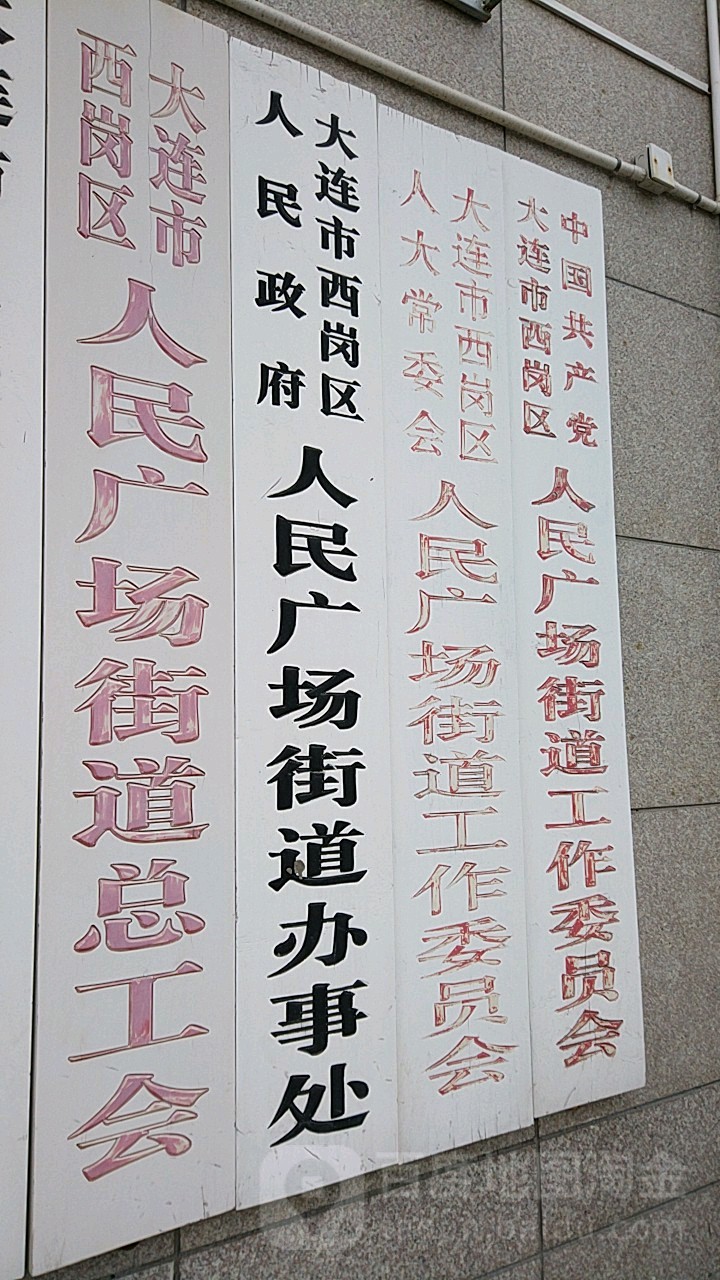 中国共产党
大连市西岗区
人民广场街道工作委员会
大连市西岗区
人大常委会
人民广场街道工作委员会
大连市西岗区
人民政府
人民广场街道办事处
大连市
西岗区
人民广场街道总工会
百度地图淘金